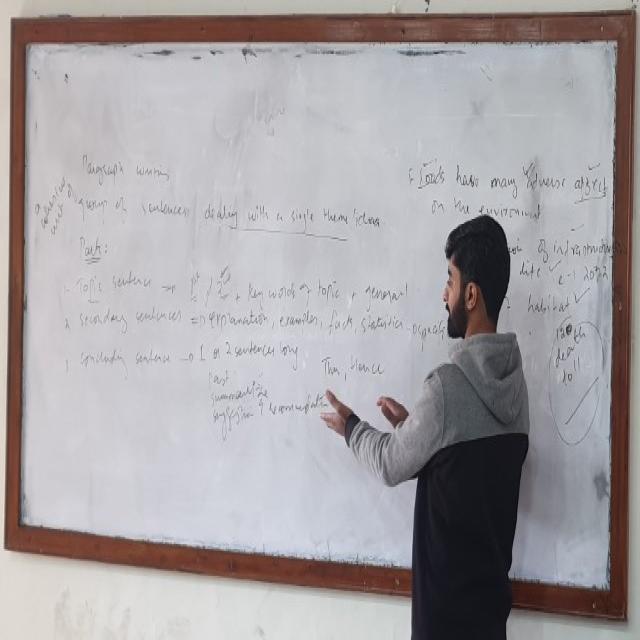 Paragraph writing
group of sentences dealing with a single theme/idea
Parts:
1- Topic sentence → 1st / 2nd + key words of topic + general
2 secondary sentences => explanation, examples, facts, statistics
3 concluding sentence → 1 or 2 sentences long
last
summarize
suggestion + recommendation
Thus, Hence
Floods have many adverse effects
on the environment
of infrastructure
life e-1 2022
habitat
death
toll